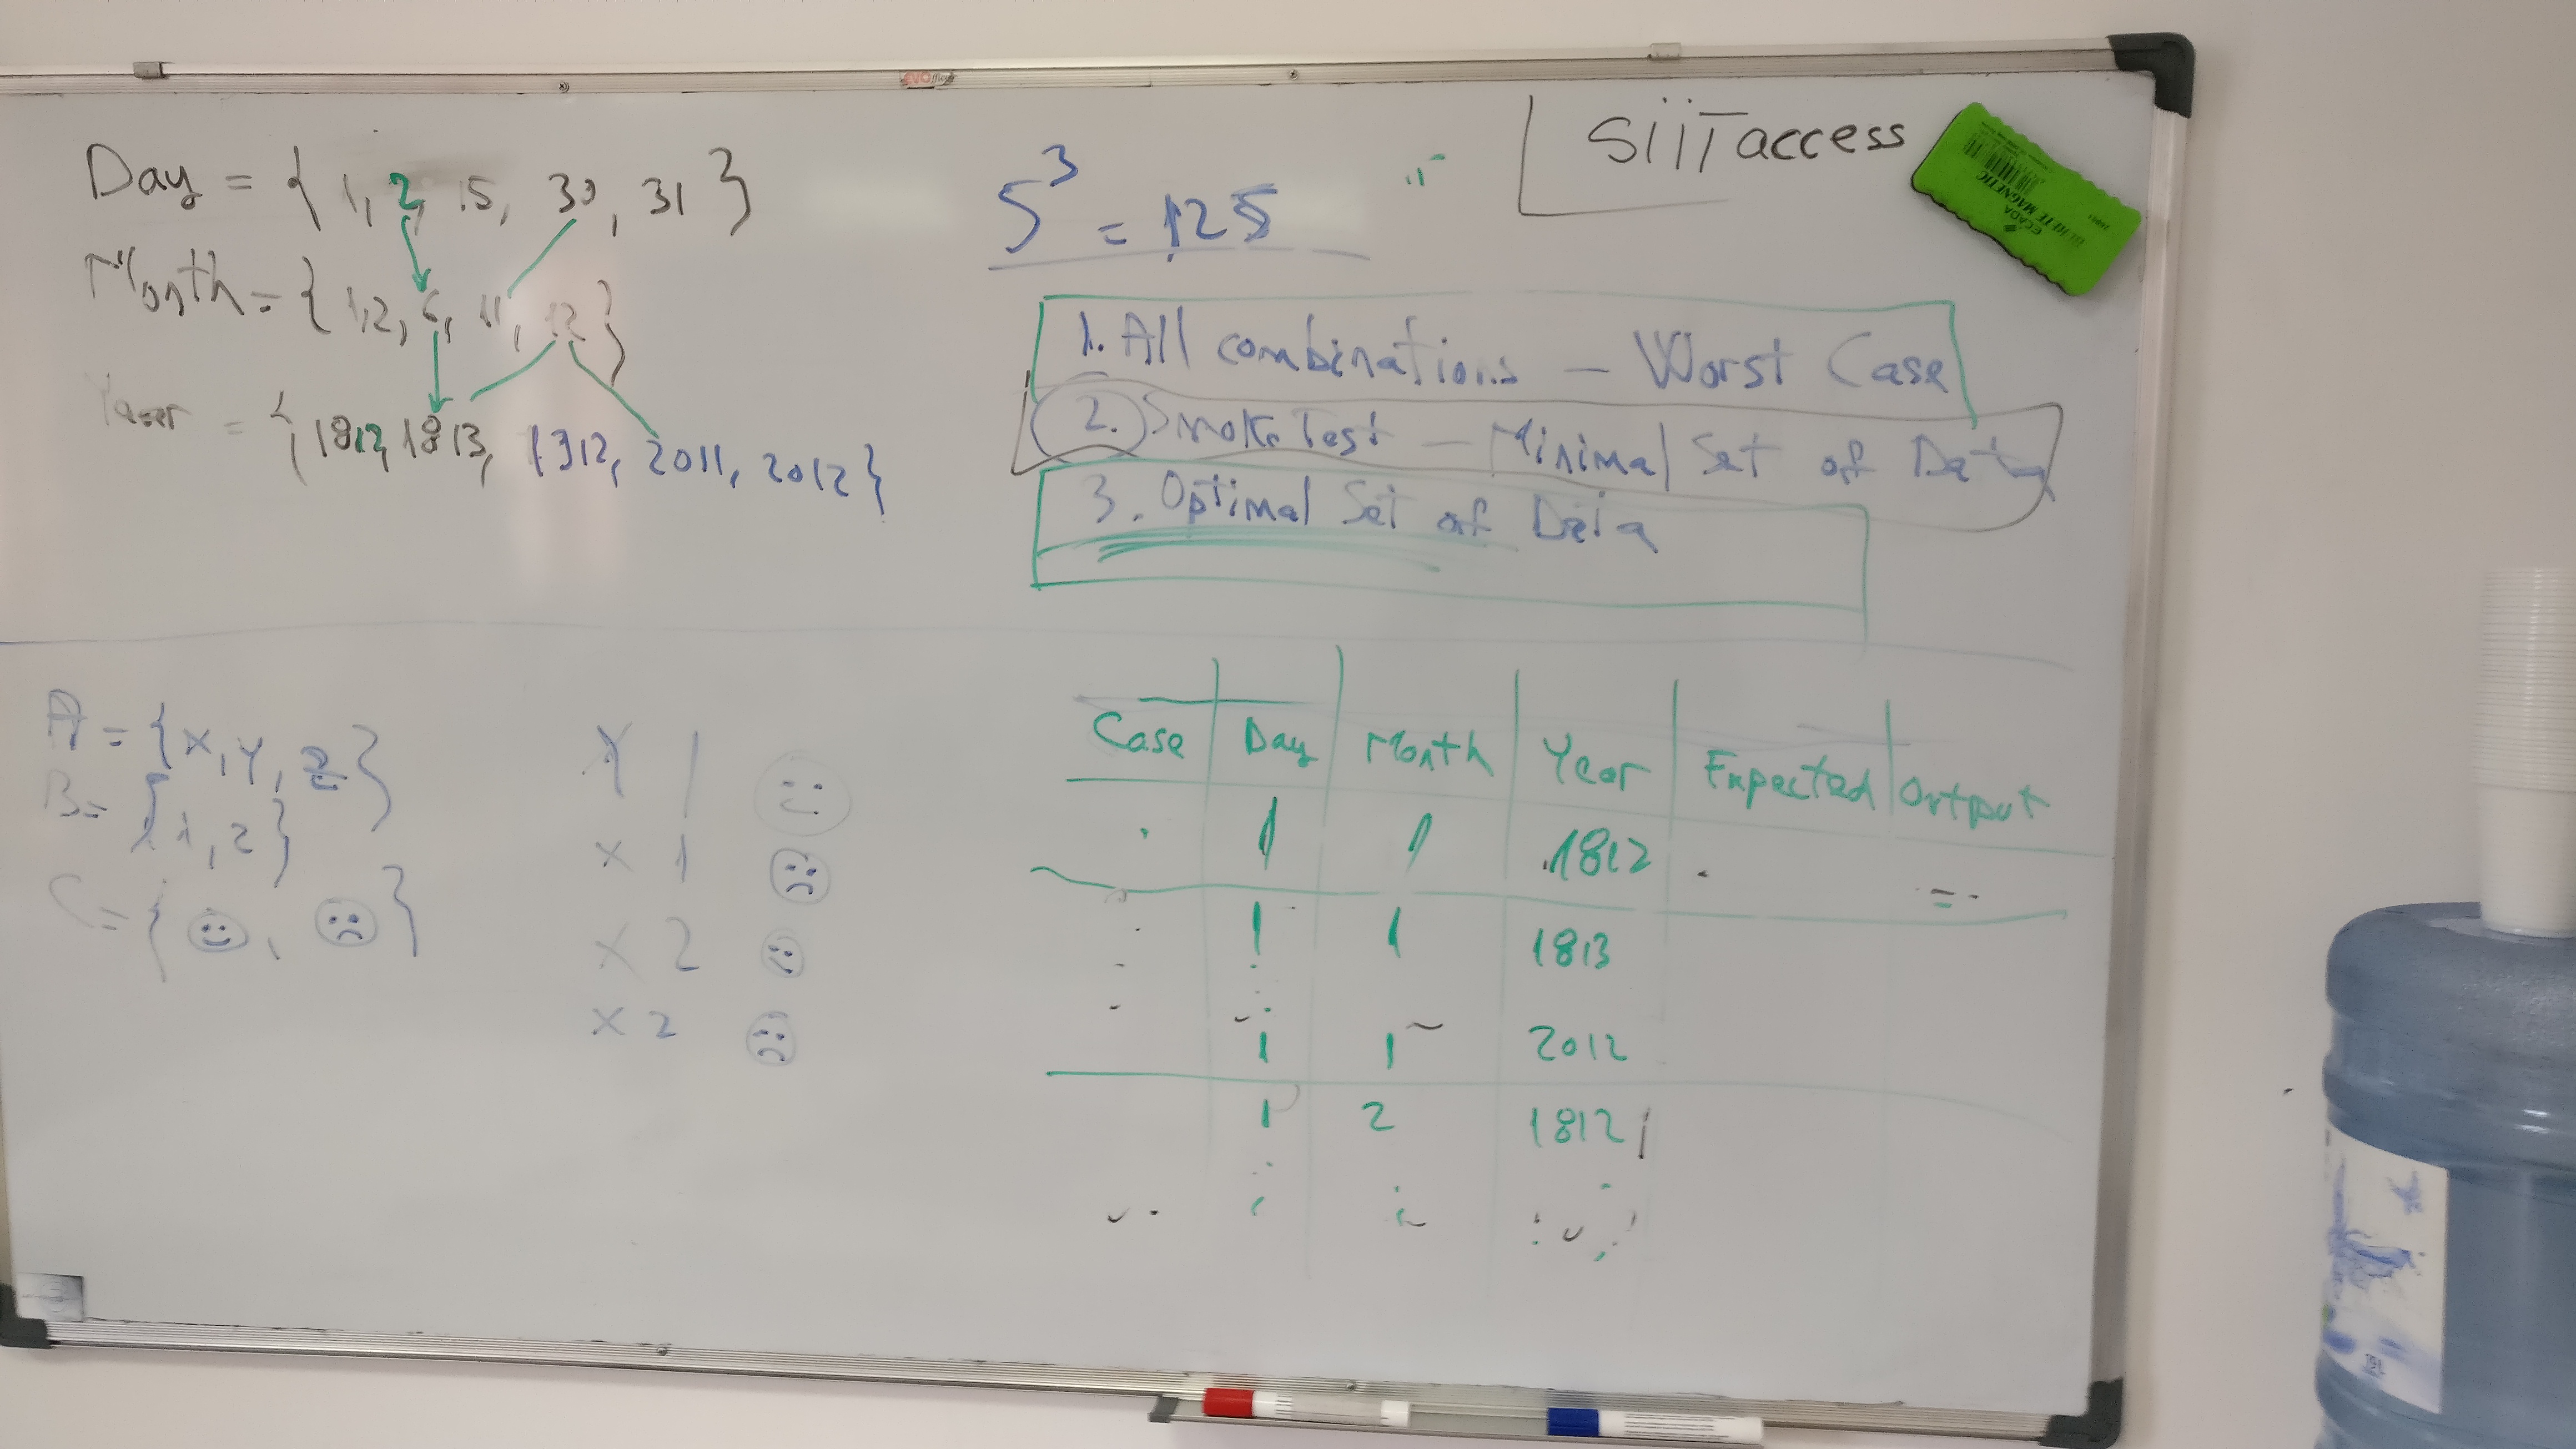 Day = { 1, 2, 15, 30, 31 }
Month = { 1, 2, 6, 11, 12 }
= { 1812, 1813, 1912, 2011, 2012 }
5³ = 125
SiiTaccess
1. All combinations – Worst Case
2. Smoke Test – Minimal Set of Data
3. Optimal Set of Data
A = { x, y, z }
B = { 1, 2 }
C = { ☺, ☹ }
X 1 ☺
x 1 ☹
x 2 ☺
x 2 ☹
Case Day Month Year Expected Output
1 1 1812
1 1 1813
1 1 2012
1 2 1812